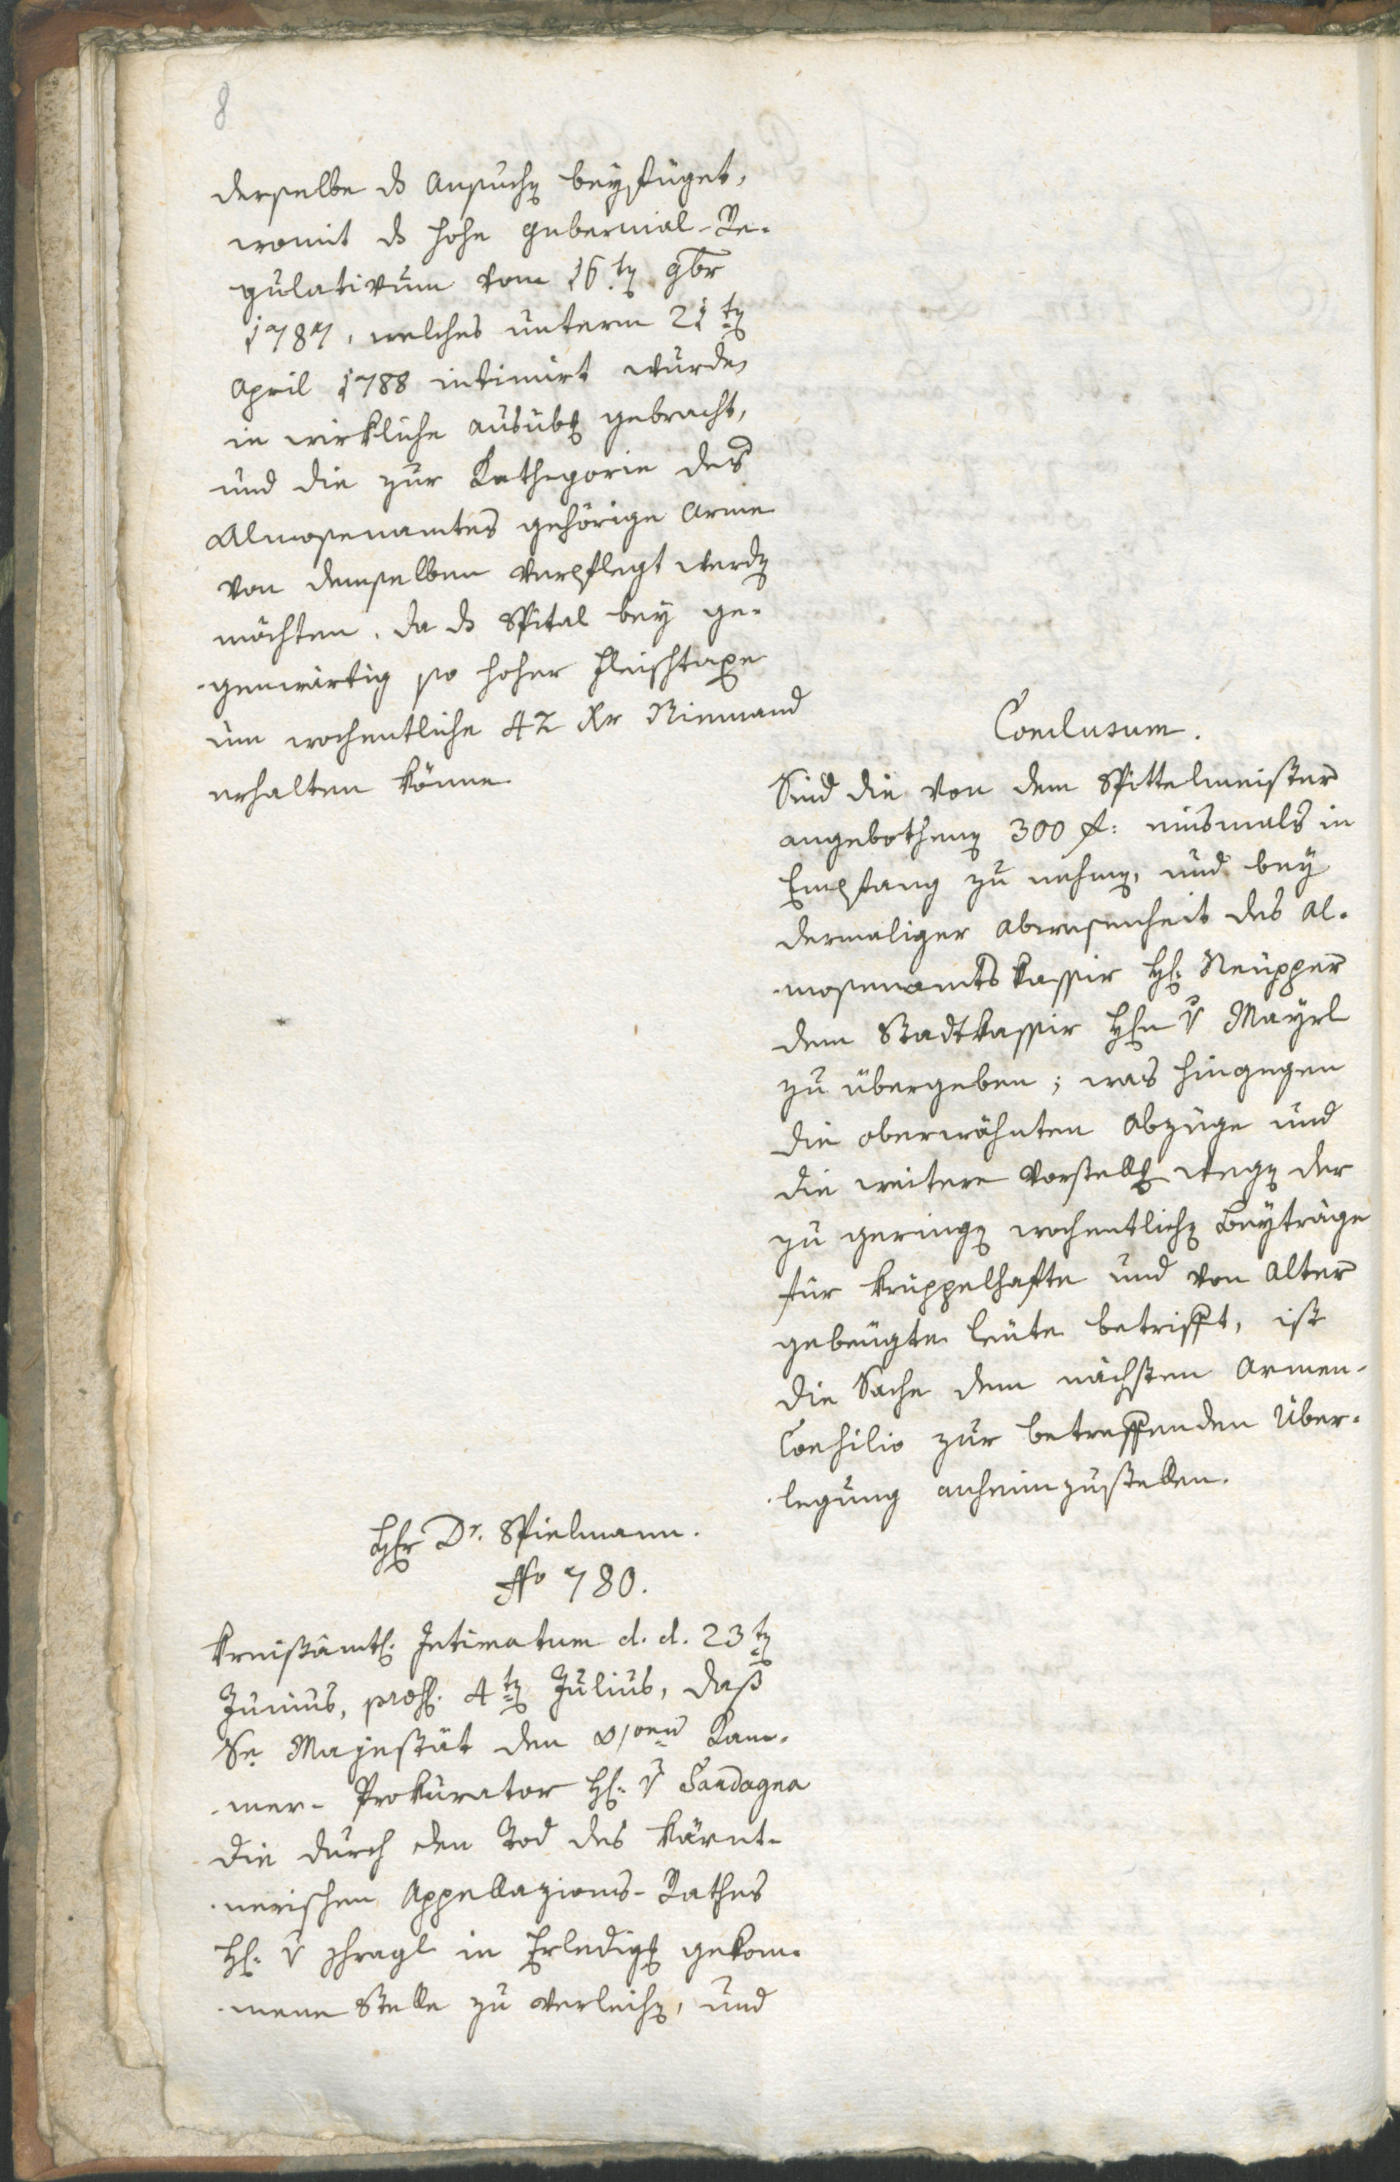 8
derselbe ds Ansuchen beyfüget,
womit ds hohe Gubernial-Re-
gulativum vom 16ten 9br
1787, welches unterm 21ten
April 1788 intimirt wurde,
in wirkliche Ausübung gebracht,
und die zur Kathegorie des
Almosenamtes gehörige Arme
von demselben verpflegt werden
möchten, da ds Spital bey ge-
genwärtig so hoher Fleischtaxe
um wochentliche 42 Xr Niemand
erhalten könne.
Conclusum.
Sind die von dem Spittelmeister
angebothenen 300 f: einsmals in
Empfang zu nehmen, und bey
dermaliger Abwesenheit des Al-
mosenamtskassir H: Neupper
dem Stadtkassir Hhn v Mayrl
zu übergeben; was hingegen
die oberwähnten Abzüge und
die weitere Vorstellung wegen der
zu geringen wochentlichen Beyträge
für krüppelhafte und von Alter
gebeugte Leute betrifft, ist
die Sache dem nächsten Armen-
Consilio zur betreffenden Über-
legung anheimzustellen.
Hhr Dr. Spielmann.
No 780.
Kreißämtl: Intimatum d. d. 23ten
Junius, præs: 4ten Julius, daß
Se Majestät den Kam-
mer-Prokurator H: v Cardagna
die durch den Tod des Kärnt-
nerischen Appellazions-Rathes
H: v in Erledigung gekom-
mene Stelle zu verleihen, und